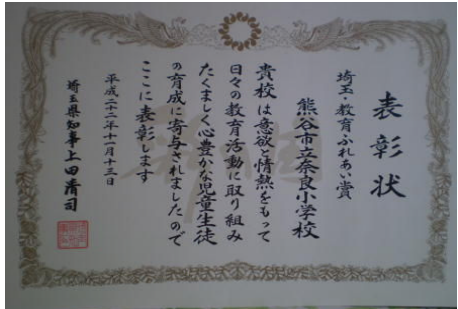 表彰状
埼玉・教育ふれあい賞
熊谷市立奈良小学校
貴校は意欲と情熱をもって
日々の教育活動に取り組み
たくましく心豊かな児童生徒
の育成に寄与されましたので
ここに表彰します
平成二十二年十一月十三日
埼玉県知事上田清司